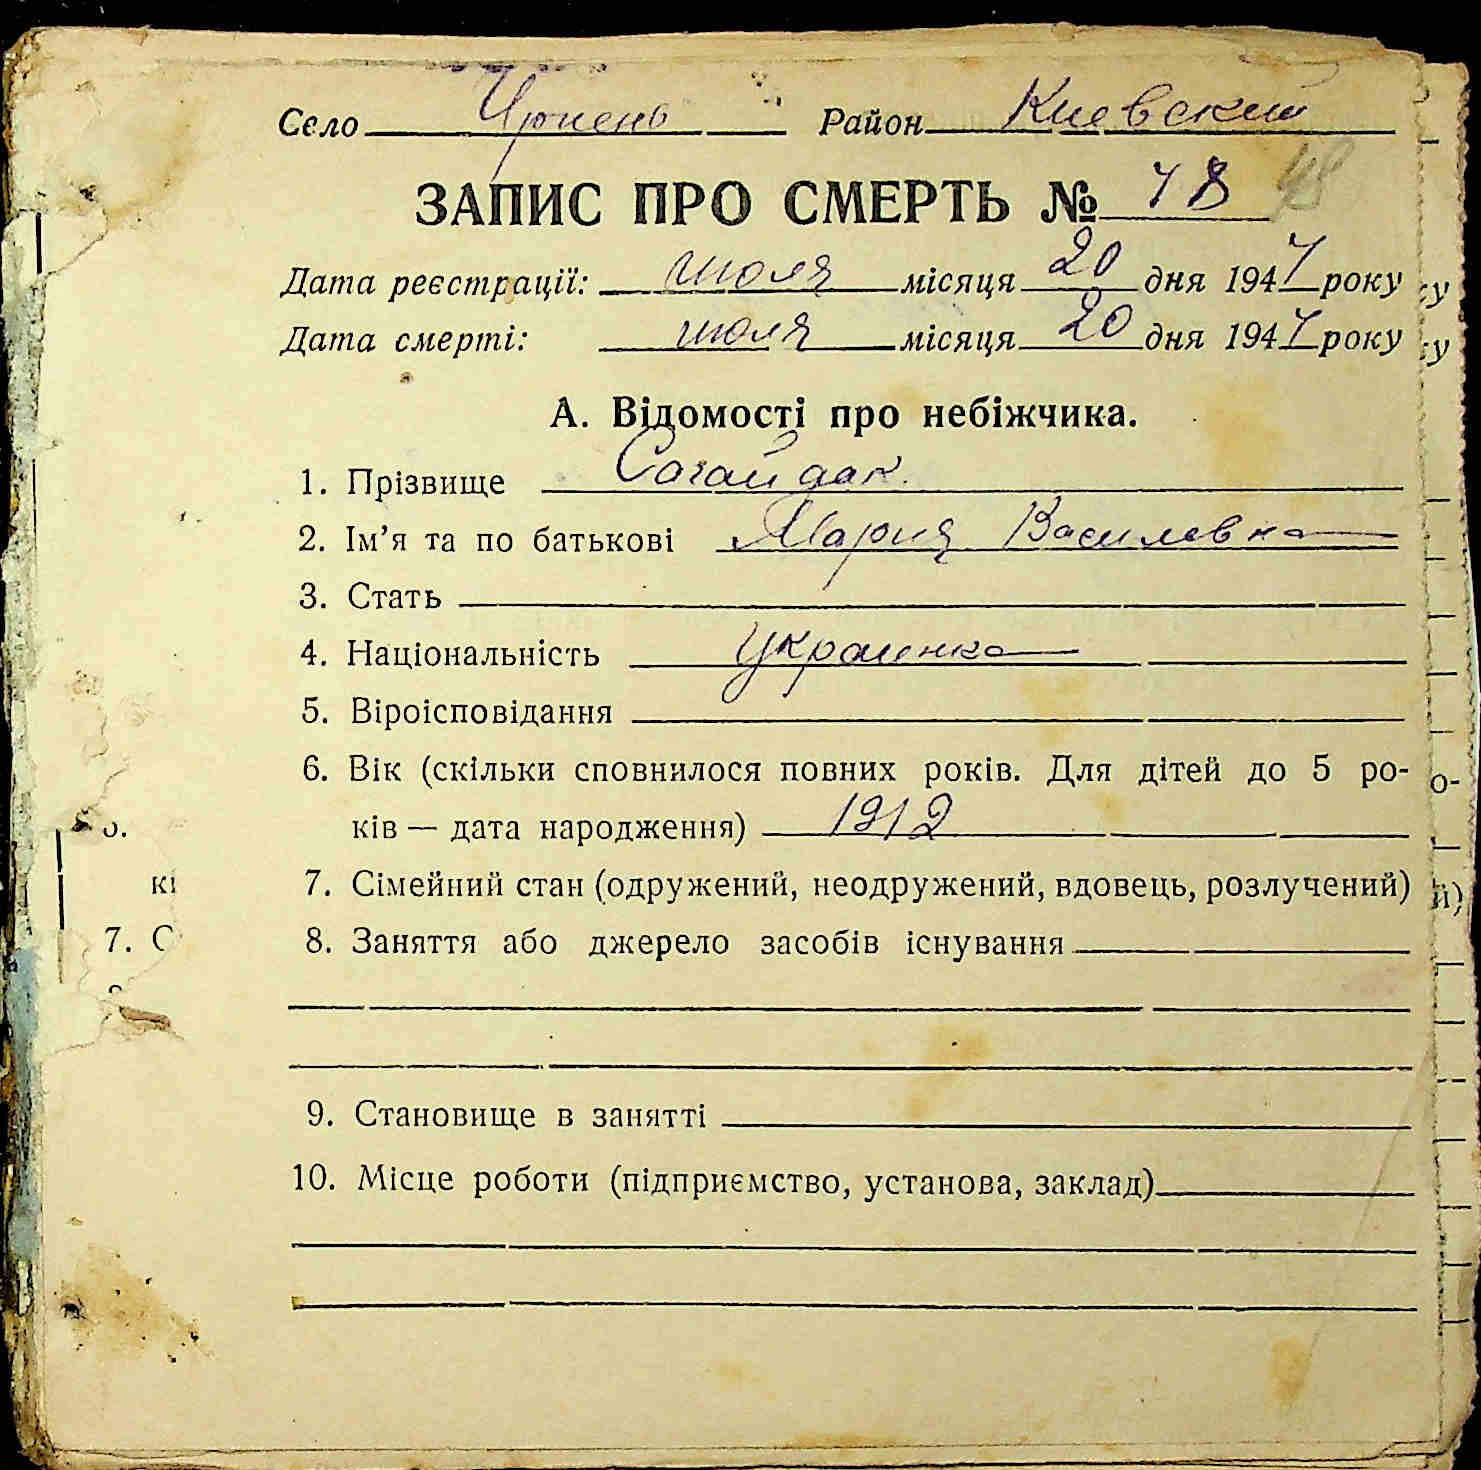 Село Ирпень Район Киевский
ЗАПИС ПРО СМЕРТЬ № 48 48
Дата реєстрації: июля місяця 20 дня 1947 року
Дата смерті: июля місяця 20 дня 1947 року
А. Відомості про небіжчика.
1. Прізвище Согайдак.
2. Ім'я та по батькові Мария Василевна
3. Стать
4. Національність Украинка
5. Віроісповідання
6. Вік (скільки сповнилося повних років. Для дітей до 5 ро-
ків — дата народження) 1912
7. Сімейний стан (одружений, неодружений, вдовець, розлучений)
8. Заняття або джерело засобів існування
9. Становище в занятті
10. Місце роботи (підприємство, установа, заклад)